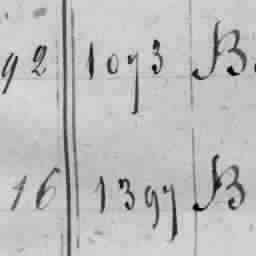 92 1073 B.
16 1397 B